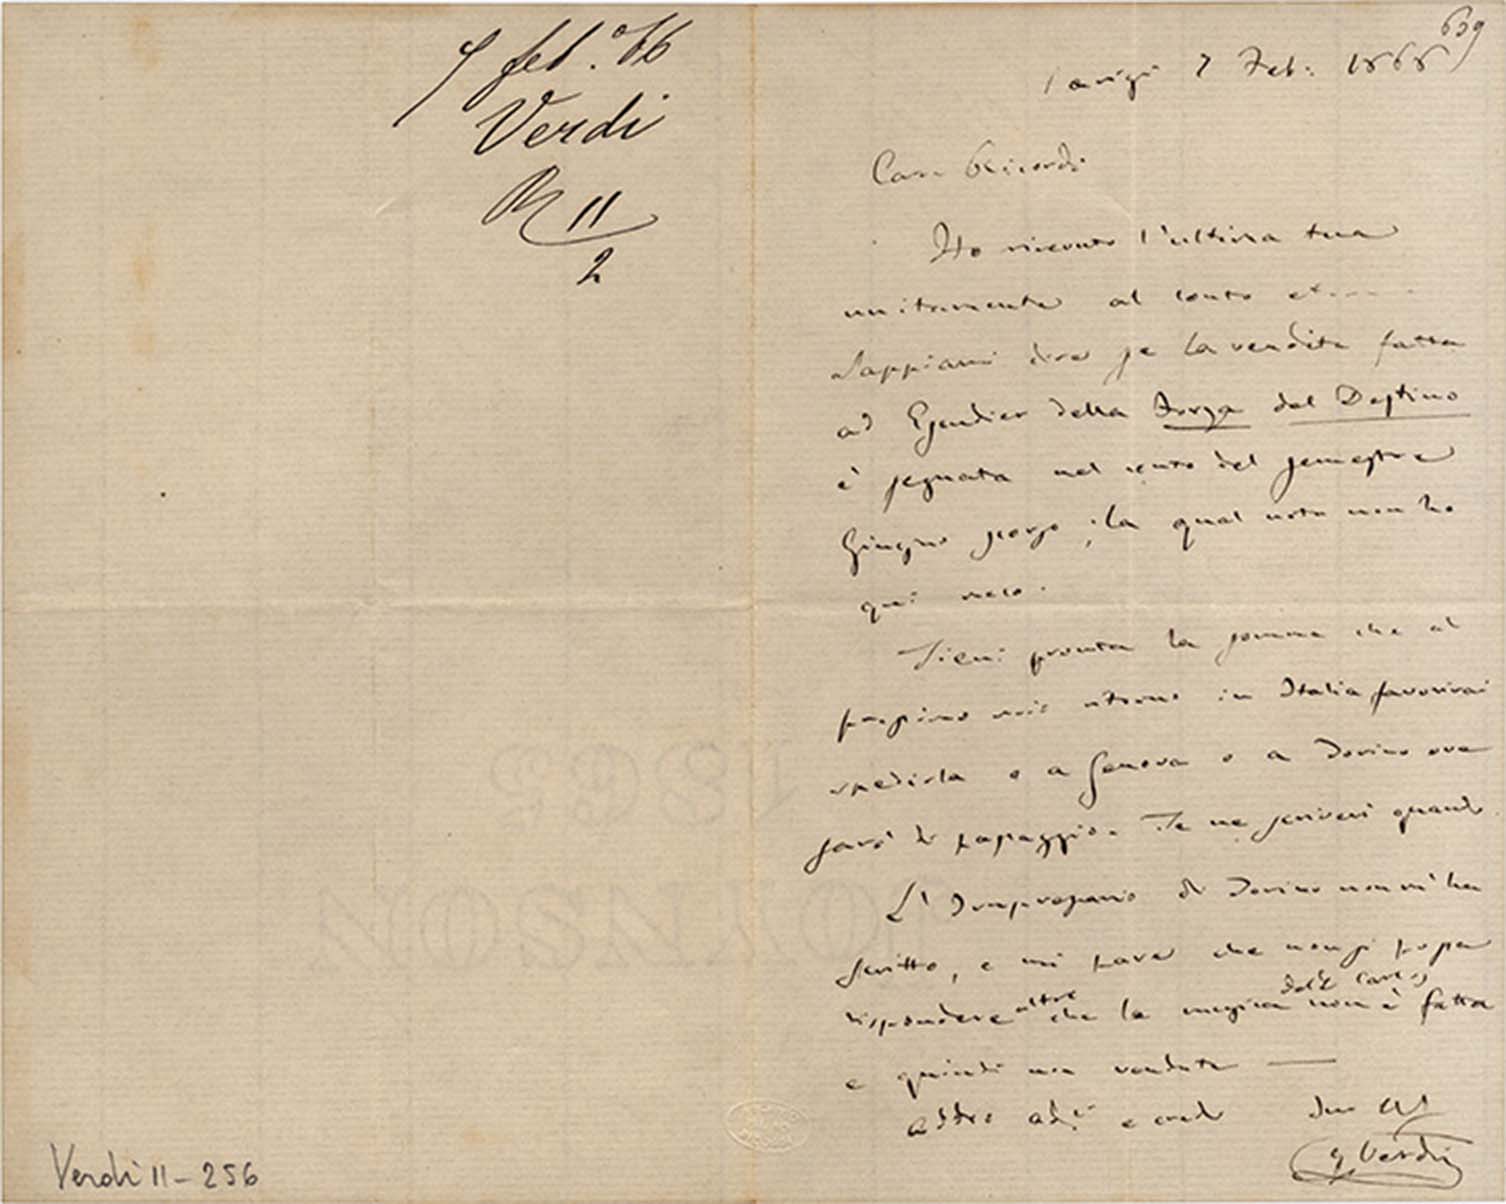 7 feb.º 66
Verdi
R 11
2
639
Parigi 7 Feb: 1866
Caro Ricordi
Ho ricevuto l'ultima tua
unitamente al conto
Sappiami dire se la vendita fatta
ad Escudier della Forza del Destino
è segnata nel conto del semestre
Giugno scorso; la qual nota non ho
qui meco.
Tieni pronta la somma che al
prossimo mio ritorno in Italia favorirai
spedirla o a Genova o a Torino ove
sarò di passaggio. Te ne scriverò quando
L'Impresario di Torino non m'ha
scritto, e mi pare che non si possa
rispondere altro che la musica del D. Carlos non è fatta
e quindi non venduta —
Addio add: e credi
G Verdi
Verdi 11 - 256
1865
JOYNSON